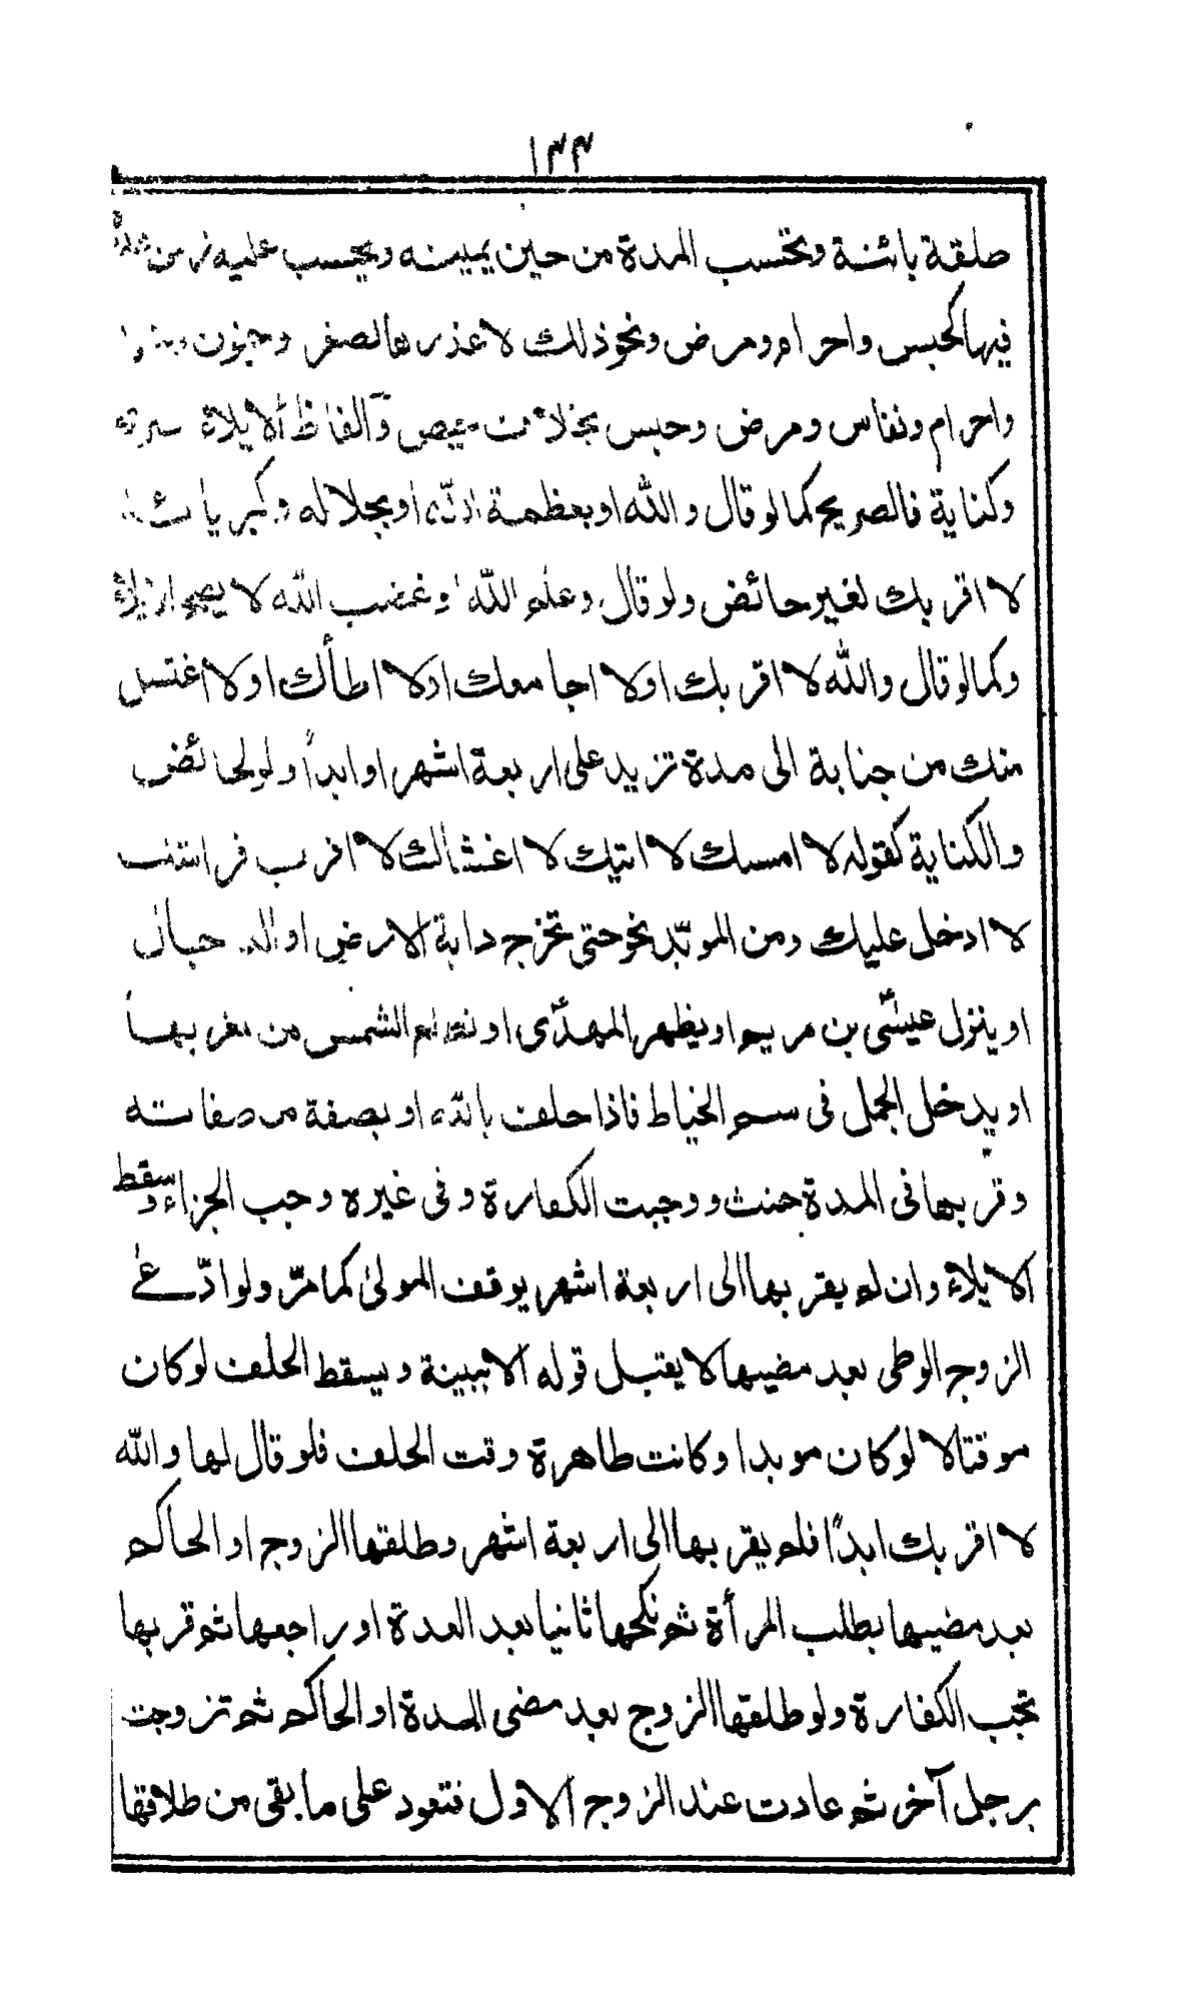 ١٣٣
طلقة بائنة وتحتسب المدة من حين يمينه ويحسب عليه زمن
فيها كحبس واحرام ومرض ونحو ذلك لا عذرها كصغر وجنون
واحرام ونفاس ومرض وحبس بخلاف حيض وآلفاظ الايلاء
وكناية فالصريح كما لو قال والله او بعظمة الله او بجلاله وكبريائه
لا اقربك لغير حائض ولو قال وعلم الله وغضب الله لا يصح ايلاؤه
وكما لو قال والله لا اقربك اولا اجامعك اولا اطأك اولا اغتسل
منك من جنابة الى مدة تزيد على اربعة اشهر او ابداً ولو لحائض
والكناية كقوله لا امسك لا اتيك لا اغشاك لا اقرب فراشك
لا ادخل عليك ومن الموبّد نحو حتى تخرج دابة الارض او الدجال
او ينزل عيسٰى بن مريم او يظهر المهدّى او تطلع الشمس من مغربها
او يدخل الجمل فى سم الخياط فاذا حلف بالله او بصفة من صفاته
وقربها فى المدة حنث ووجبت الكفارة وفى غيره وجب الجزاء وسقط
الايلاء وان لم يقربها الى اربعة اشهر يوقف المولىٰ كما مرّ ولو ادّعى
الزوج الوطى بعد مضيها لا يقبل قوله الا ببينة ويسقط الحلف لو كان
موقتا لا لو كان موبدا وكانت طاهرة وقت الحلف فلو قال لها والله
لا اقربك ابداً فلم يقربها الى اربعة اشهر وطلقها الزوج او الحاكم
بعد مضيها بطلب المرأة ثم نكحها ثانيا بعد العدة او راجعها ثم قربها
تجب الكفارة ولو طلقها الزوج بعد مضى المدة او الحاكم ثم تزوجت
برجل آخر ثم عادت عند الزوج الاول فتعود على ما بقى من طلاقها